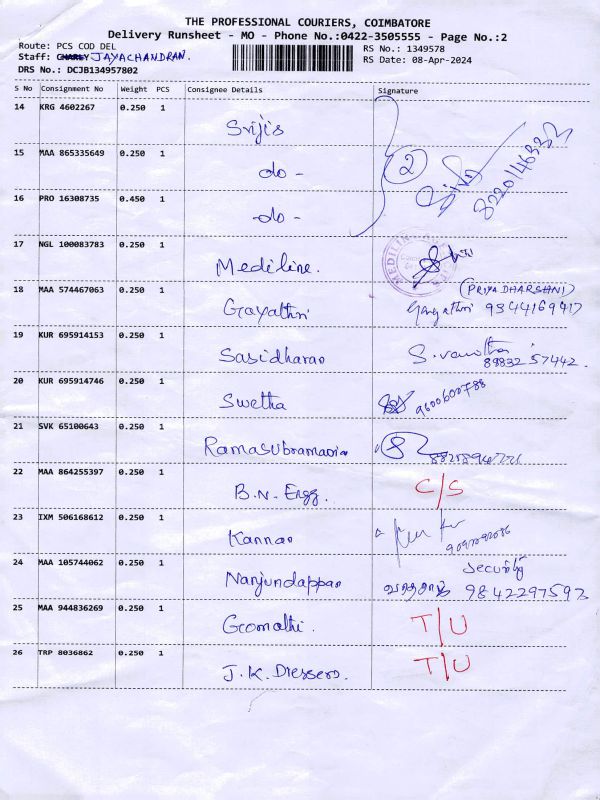 THE PROFESSIONAL COURIERS, COIMBATORE
Delivery Runsheet - MO - Phone No.:0422-3505555 - Page No.:2
Route: PCS COD DEL
RS No.: 1349578
Staff: JAYACHANDRAN.
RS Date: 08-Apr-2024
DRS No.: DCJB134957802
S No Consignment No Weight PCS Consignee Details Signature
14 KRG 4602267 0.250 1 Sriji's
15 MAA 865335649 0.250 1 -do- 2
16 PRO 16308735 0.450 1 -do-
17 NGL 100083783 0.250 1 Mediline.
(PRIYADHARSHNI)
18 MAA 574467063 0.250 1 Gayathri Gayathri 9344169417
19 KUR 695914153 0.250 1 Sasidharan
20 KUR 695914746 0.250 1 Swetha 9600600788
21 SVK 65100643 0.250 1 Ramasubramanian
22 MAA 864255397 0.250 1 B.N. Engg. C/S
23 IXM 506168612 0.250 1 Kannan
24 MAA 105744062 0.250 1 Nanjundappan Security
9842297593
25 MAA 944836269 0.250 1 Gomathi. T/U
26 TRP 8036862 0.250 1 J.K. Dressers. T/U